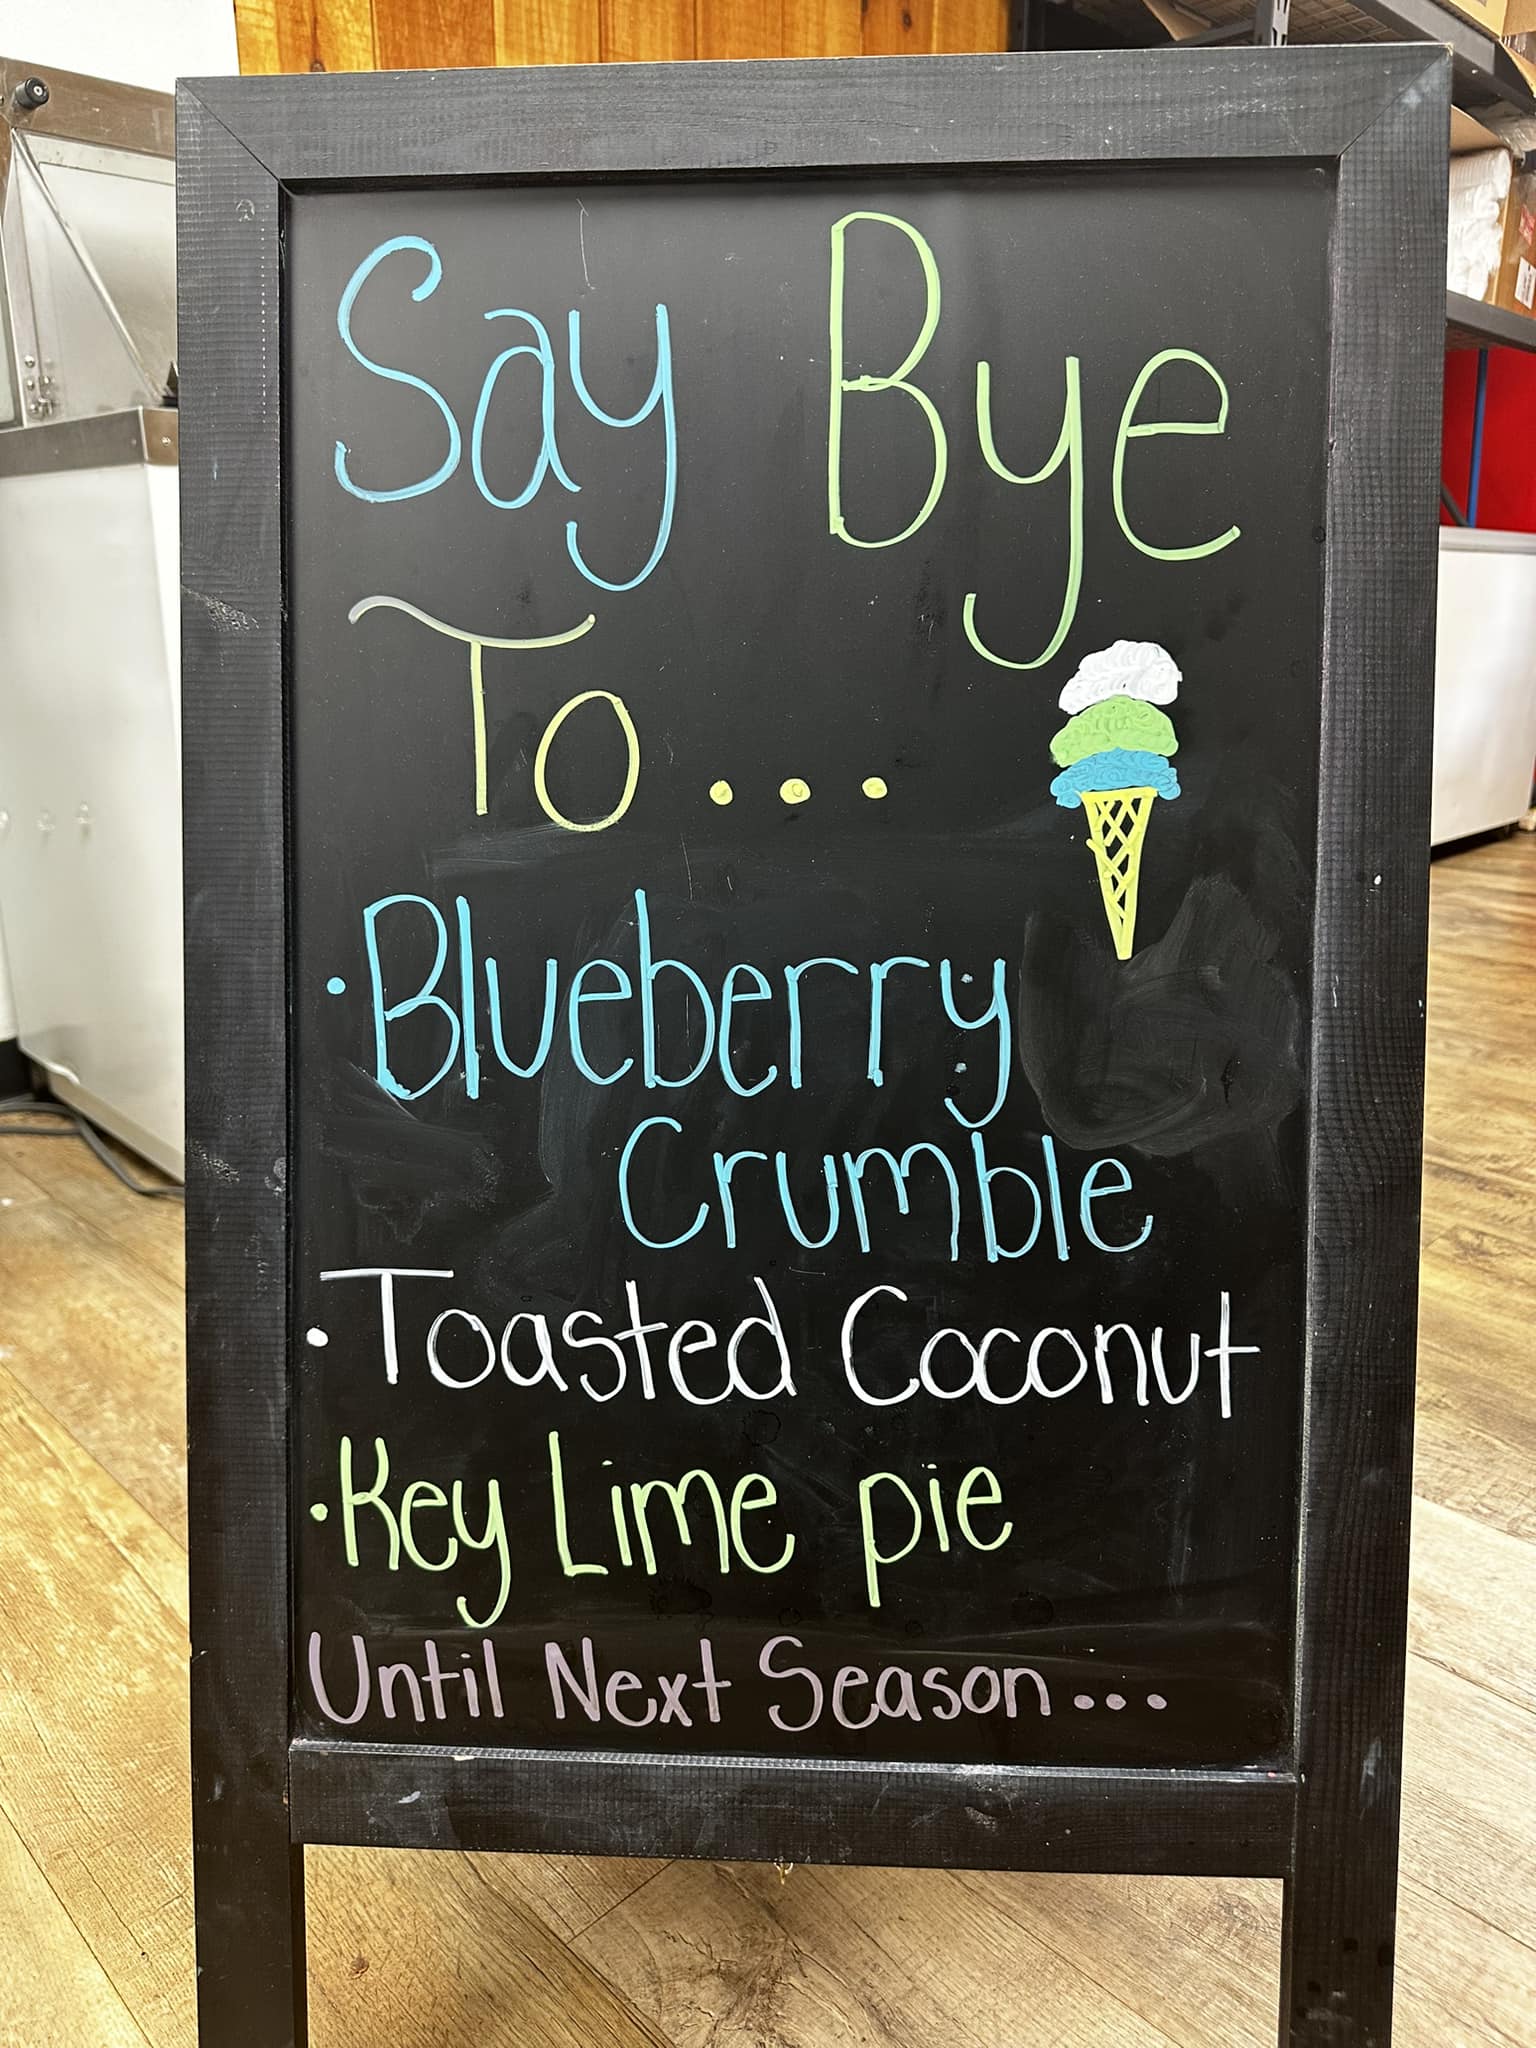 Say Bye
To...
· Blueberry
Crumble
· Toasted Coconut
· Key Lime pie
Until Next Season...